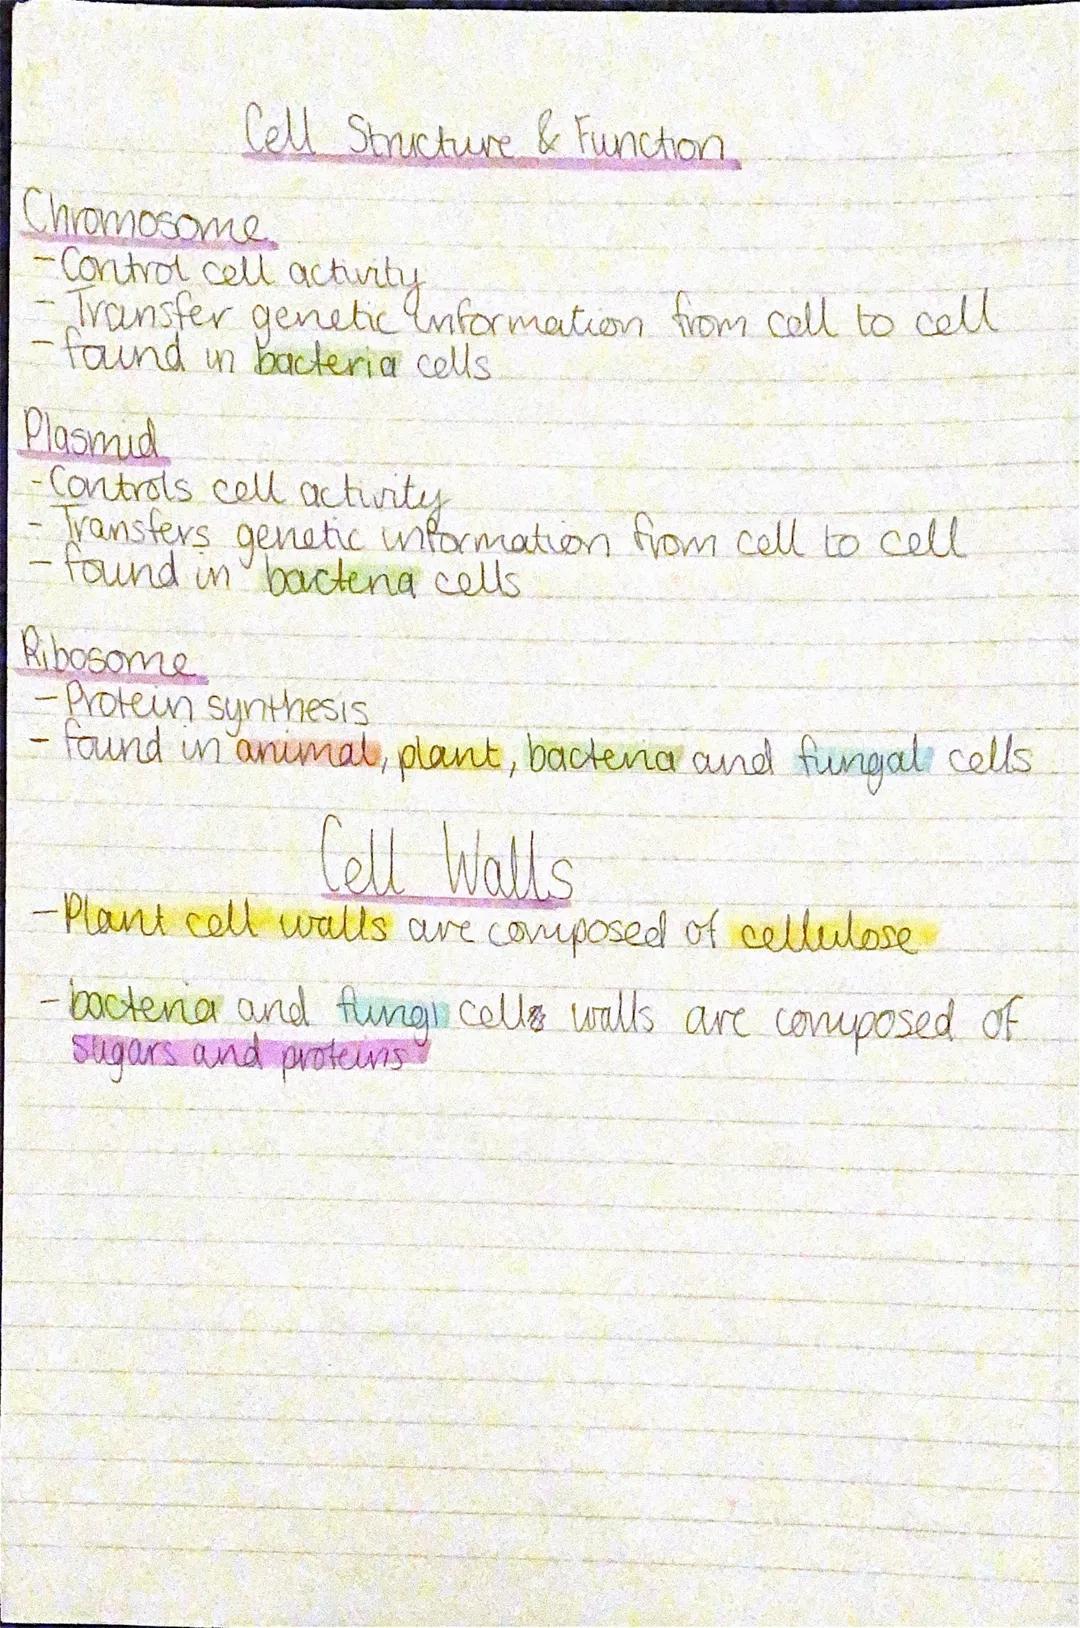 Cell Structure & Function
Chromosome
- Control cell activity
- Transfer genetic information from cell to cell
- found in bacteria cells
Plasmid
- Controls cell activity
- Transfers genetic information from cell to cell
- found in bacteria cells
Ribosome
- Protein synthesis
- found in animal, plant, bacteria and fungal cells
Cell Walls
- Plant cell walls are composed of cellulose
- bacteria and fungi cell walls are composed of
sugars and proteins